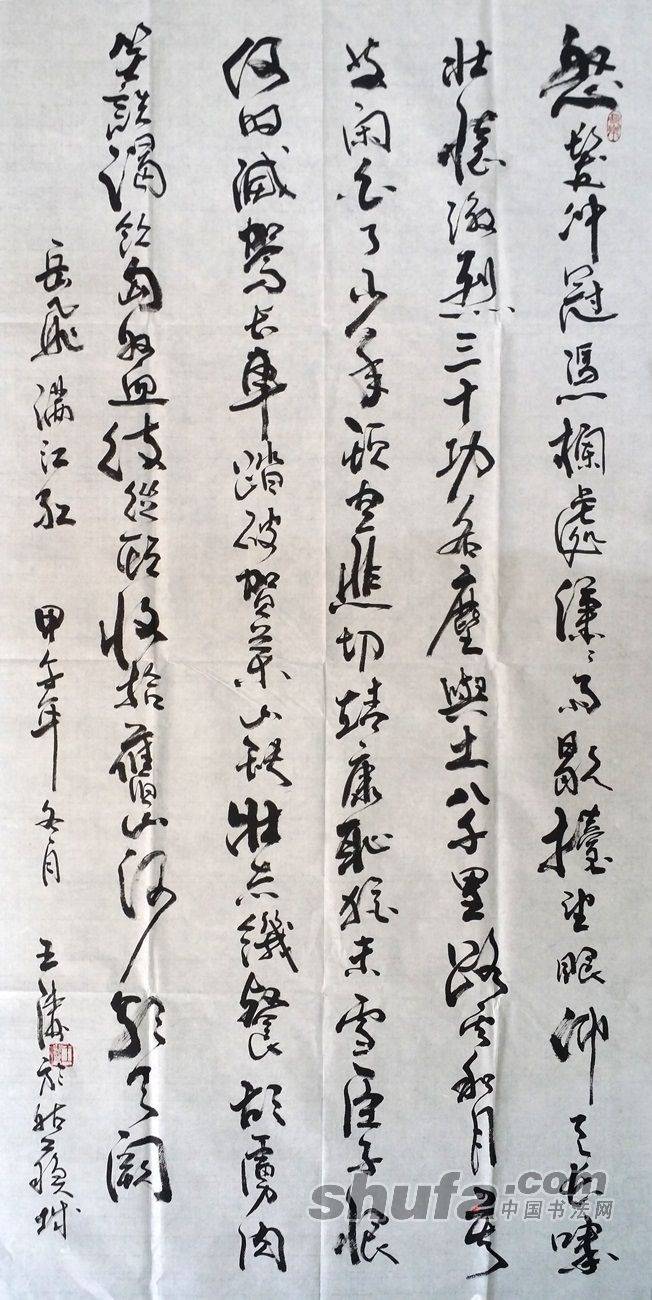 怒髮冲冠憑欄處瀟〻雨歇擡望眼仰天長嘯
壯懷激烈三十功名塵與土八千里路云和月莫
等闲白了少年頭空悲切靖康恥猶未雪臣子恨
何时滅駕長車踏破賀蘭山缺壯志饑餐胡虜肉
笑談渴飲匈奴血待從頭收拾舊山河朝天闕
岳飛滿江紅 甲午年冬月 王 於姑蘇城
shufa.com
中国书法网